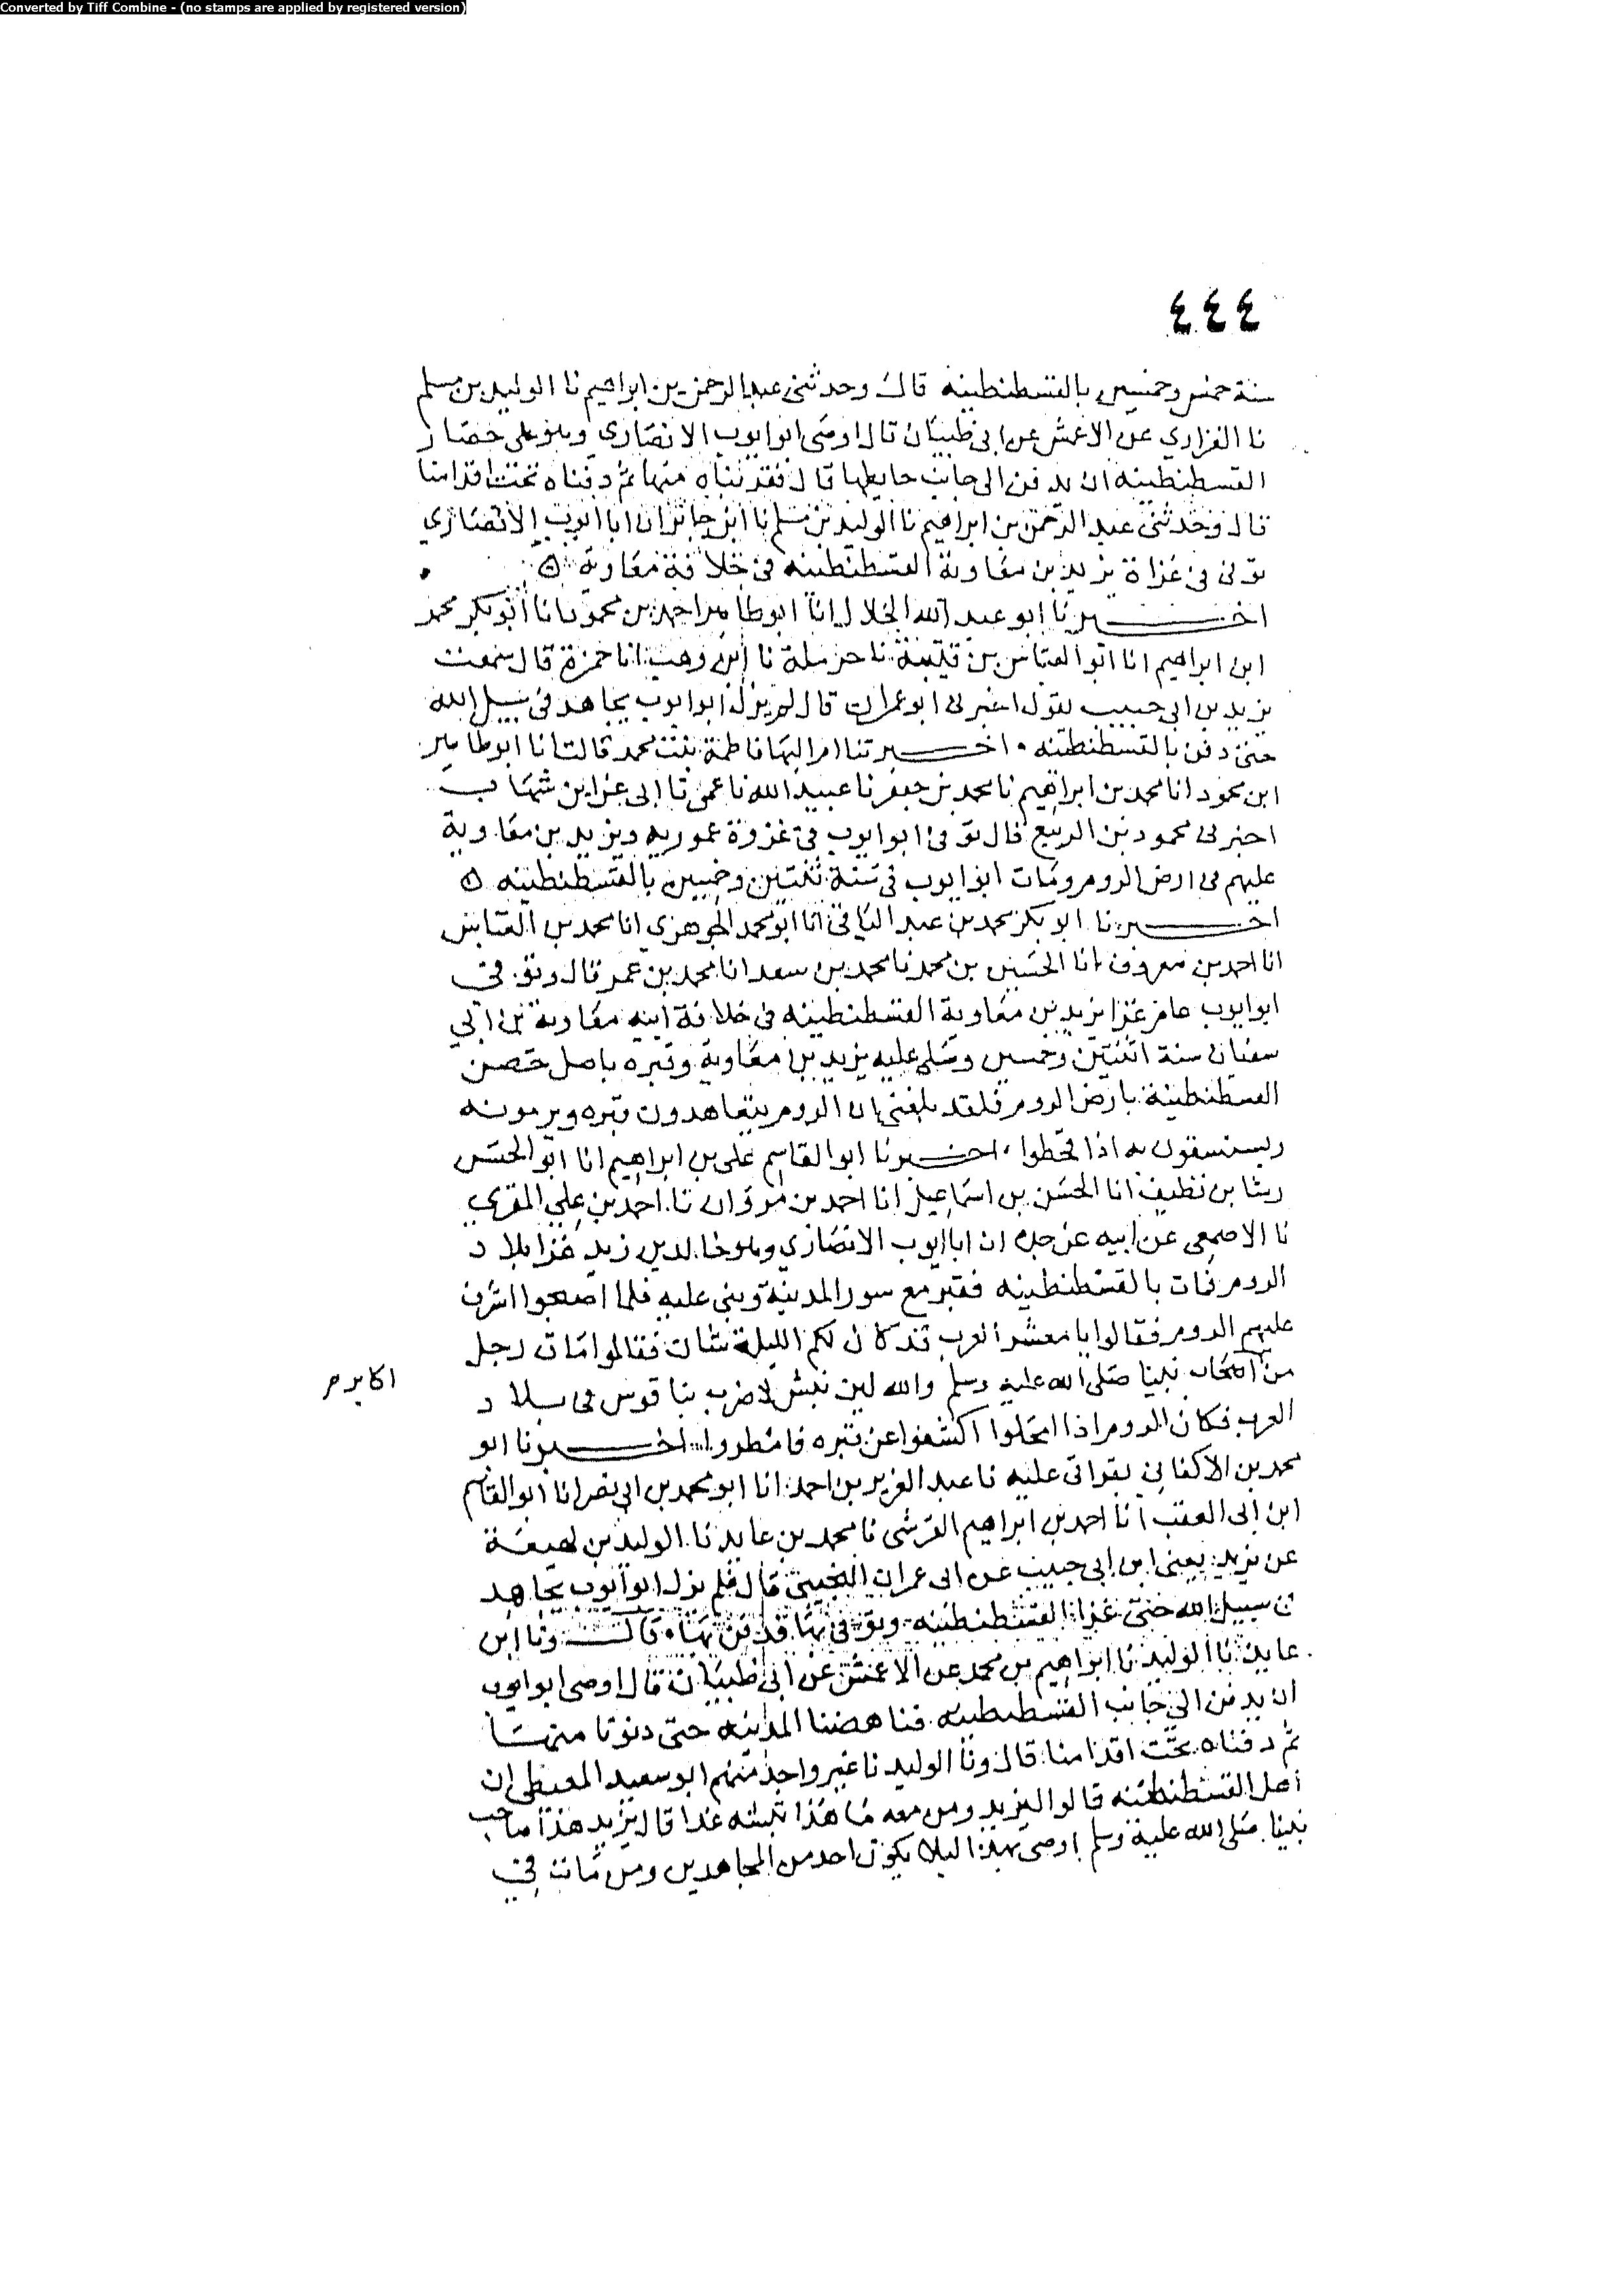 Converted by Tiff Combine - (no stamps are applied by registered version)
٤٤٤
سنة خمس وخمسين بالقسطنطينه قال وحدثني عبد الرحمن بن ابراهيم نا الوليد بن مسلم
نا الفزاري عن الاعمش عن ابى ظبيان قال اوصى ابوايوب الانصاري وهو على حصار
القسطنطينه ان يدفن الى جانب حايطها قال فقربناه منها ثم دفناه تحت اقدامنا
قال وحدثني عبد الرحمن بن ابراهيم نا الوليد بن مسلم نا ابن جابر ان ابا ايوب الانصاري
توفى فى غزاة يزيد بن معاوية القسطنطينه فى خلافة معاوية ه
اخبرنا ابو عبد الله الخلال انا ابو طاهر احمد بن محمود انا أبو بكر محمد
ابن ابراهيم انا ابو العباس بن قتيبة نا حرملة نا ابن وهب انا حمزة قال سمعت
يزيد بن ابى حبيب يقول اخبرنى ابو عمران قال لم يزل ابوايوب يجاهد فى سبيل الله
حتى دفن بالقسطنطينه ٠ اخبرتنا ام البها فاطمة بنت محمد قالت انا ابو طاهر
ابن محمود انا محمد بن ابراهيم نا محمد بن جعفر نا عبيد الله نا عمى نا ابى عن ابن شهاب
اخبرنى محمود بن الربيع قال توفى ابوايوب فى غزوة عموريه ويزيد بن معاوية
عليهم فى ارض الروم ومات ابوايوب فى سنة ثنتين وخمسين بالقسطنطينه ه
اخبرنا ابو بكر محمد بن عبد الباقى انا ابو محمد الجوهري انا محمد بن العباس
انا احمد بن معروف انا الحسين بن محمد نا محمد بن سعد انا محمد بن عمر قال وتوفى
ابوايوب عام غزا يزيد بن معاوية القسطنطينه فى خلافة ابيه معاوية بن ابي
سفيان سنة اثنتين وخمسين وصلى عليه يزيد بن معاوية وقبره باصل حصن
القسطنطينة بارض الروم فلقد بلغنى ان الروم يتعاهدون قبره ويرمونه
ويستسقون به اذا قحطوا ، اخبرنا ابو القاسم على بن ابراهيم انا ابو الحسن
رشا بن نظيف انا الحسن بن اسماعيل انا احمد بن مروان نا احمد بن علي المقري
نا الاصمعى عن ابيه عن جده ان ابا ايوب الانصاري وهو خالد بن زيد غزا بلاد
الروم فمات بالقسطنطينه فقبر مع سور المدينة وبنى عليه فلما اصبحوا اشرف
عليهم الروم فقالوا يا معشر العرب قد كان لكم الليلة شان فقالوا مات رجل
من اكابر اصحاب نبينا صلى الله عليه وسلم والله لين نبش لا ضرب بناقوس فى بلاد
العرب فكان الروم اذا امحلوا اكشفوا عن قبره فامطروا اخبرنا ابو
محمد بن الاكفاني بقراتى عليه نا عبد العزيز بن احمد انا ابو محمد بن ابى نصر انا ابو القاسم
ابن ابى العقب انا احمد بن ابراهيم القرشى نا محمد بن عايد نا الوليد بن لهيعة
عن يزيد يعنى ابن ابى حبيب عن ابى عمران التجيبى قال فلم يزل ابوايوب يجاهد
فى سبيل الله حتى غزا القسطنطينه وتوفى بها فدفن بها ٠ قال ونا ابن
عايد نا الوليد نا ابراهيم بن محمد عن الاعمش عن ابى ظبيان قال اوصى ابوايوب
ان يدفن الى جانب القسطنطينه فناهضنا المدينه حتى دنونا منها
ثم دفناه تحت اقدامنا قال ونا الوليد نا غير واحد منهم ابو سعيد المعيطى ان
اهل القسطنطينه قالوا ليزيد ومن معه ما هذا ننبشه غدا قال يزيد هذا صاحب
نبينا صلى الله عليه وسلم اوصى بهذا ليلا يكون احد من المجاهدين ومن مات في